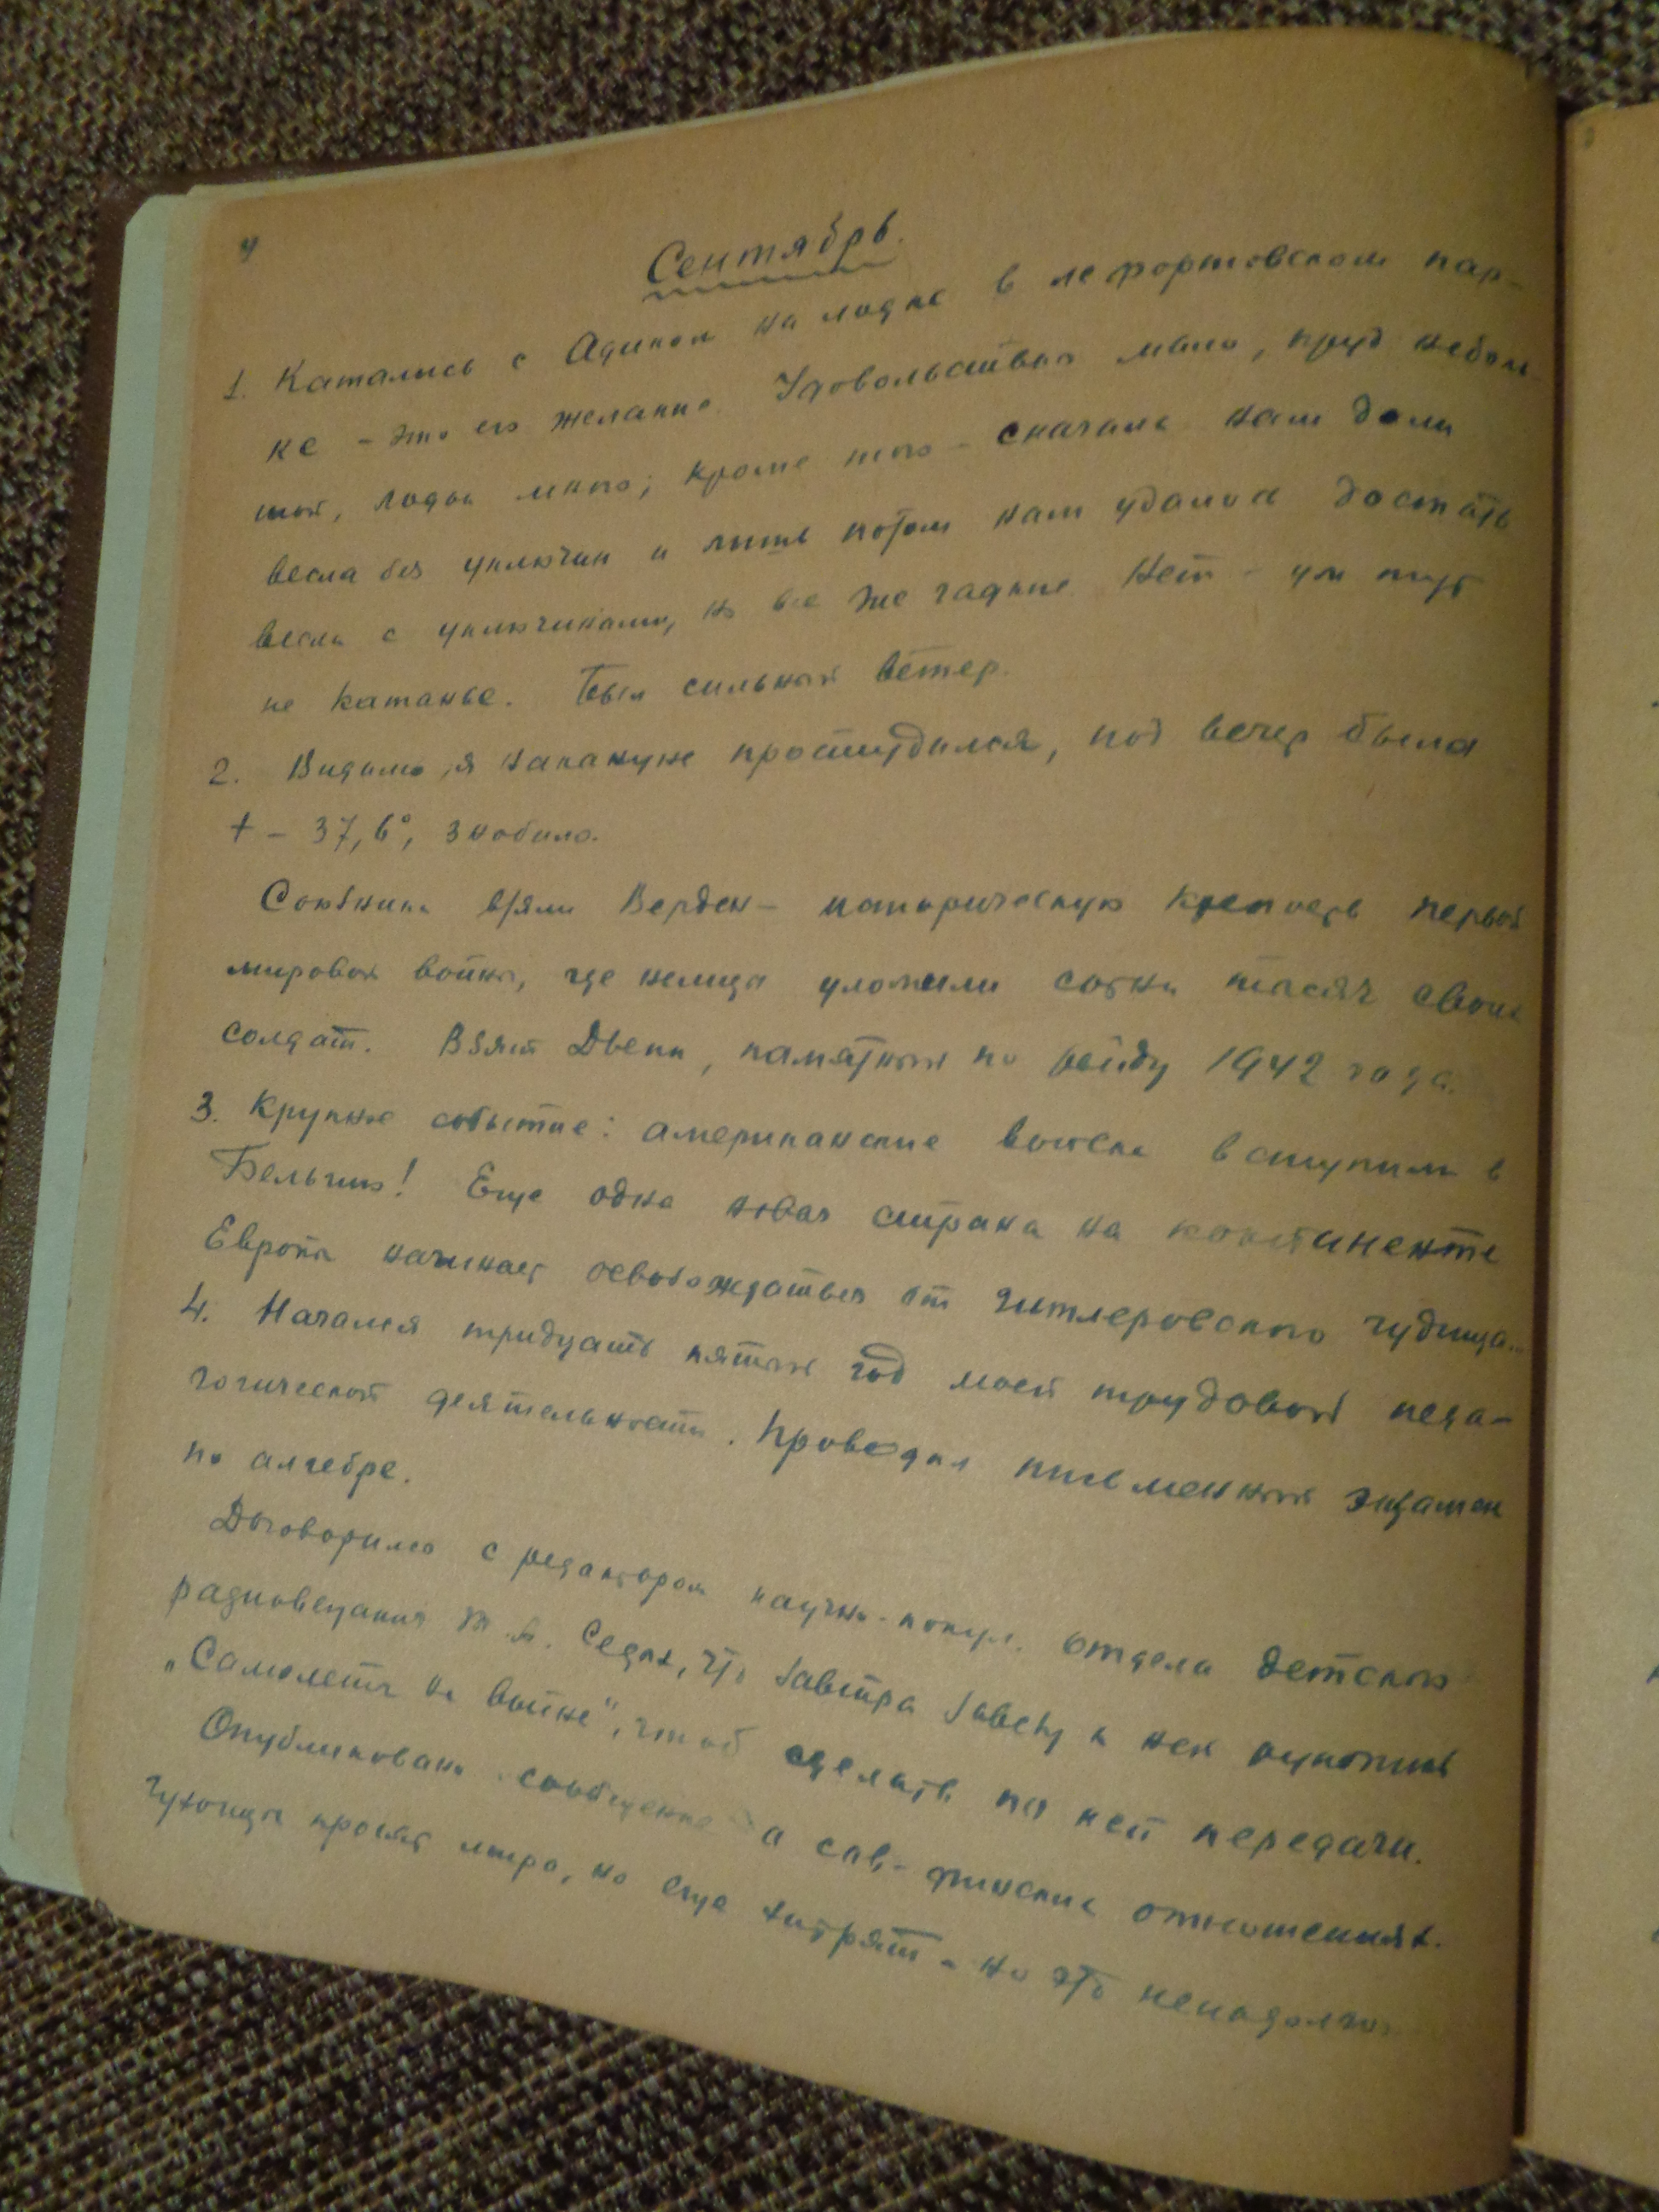 4
Сентябрь.
1. Катались с Адиком на лодке в лефортовском пар-
ке – это его желание. Удовольствия мало, пруд неболь-
шой, лодок много; кроме того – сначала нам дали
весла без уключин и лишь потом нам удалось достать
весла с уключинами, но все же гадкие. Нет – уж тут
не катанье. Был сильный ветер.
2. Видимо, я накануне простудился, под вечер была
t – 37,6°, знобило.
Союзники взяли Верден – историческую крепость первой
мировой войны, где немцы уложили сотни тысяч своих
солдат. Взят Дьепп, памятный по рейду 1942 года.
3. Крупное событие: американские войска вступили в
Бельгию! Еще одна новая страна на континенте
Европы начинает освобождаться от гитлеровского чудища...
4. Начался тридцать пятый год моей трудовой педа-
гогической деятельности. Проводил письменный экзамен
по алгебре.
Договорился с редактором научно-попул. отдела детского
радиовещания что завтра завезу к ней рукопись
„Самолеты на войне", чтоб сделать по ней передачи.
Опубликовано сообщение о сов-финских отношениях.
Чухонцы просят мира, но еще хитрят – но это ненадолго